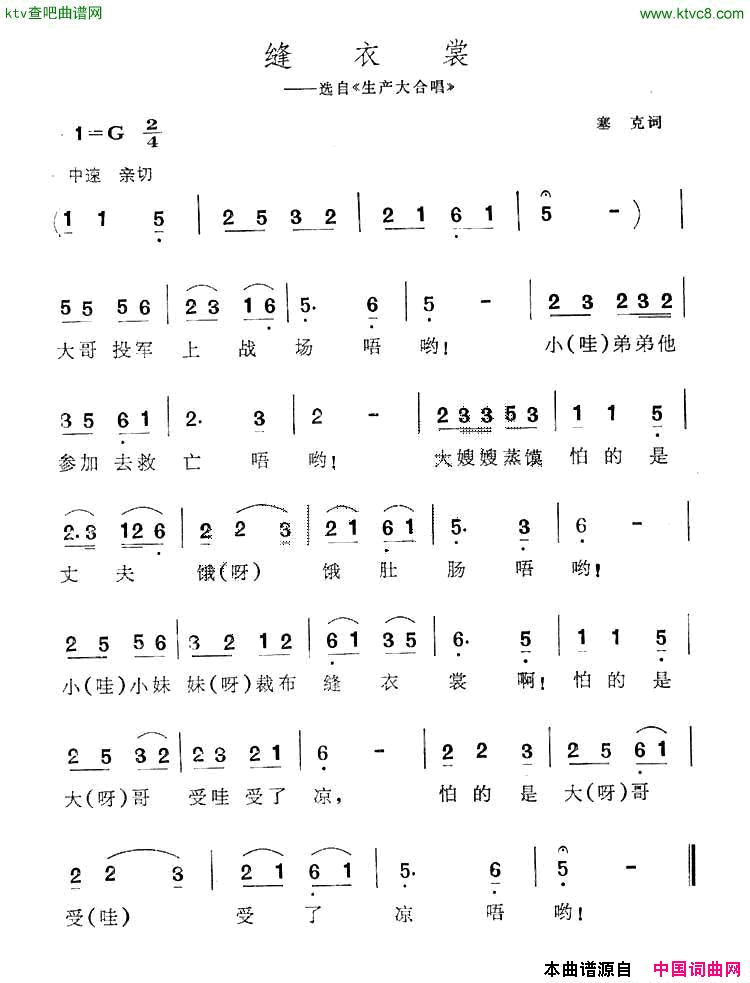 ktv查吧曲谱网
www.ktvc8.com
缝 衣 裳
——选自《生产大合唱》
1=G 2/4
塞 克词
中速 亲切
(1 1 5 | 2 5 3 2 | 2 1 6 1 | 5 - ) |
5 5 5 6 | 2 3 1 6 | 5· 6 | 5 - | 2 3 2 3 2 |
大哥投军 上 战 场 唔 哟! 小(哇)弟弟他
3 5 6 1 | 2· 3 | 2 - | 2 3 3 5 3 | 1 1 5 |
参加去救 亡 唔 哟! 大嫂嫂蒸馍 怕的是
2·3 1 2 6 | 2 2 3 | 2 1 6 1 | 5· 3 | 6 - |
丈 夫 饿(呀) 饿 肚 肠 唔 哟!
2 5 5 6 | 3 2 1 2 | 6 1 3 5 | 6· 5 | 1 1 5 |
小(哇)小妹 妹(呀)裁布 缝 衣 裳 啊! 怕的是
2 5 3 2 | 2 3 2 1 | 6 - | 2 2 3 | 2 5 6 1 |
大(呀)哥 受哇受了 凉, 怕的是 大(呀)哥
2 2 3 | 2 1 6 1 | 5· 6 | 5 - ‖
受(哇) 受 了 凉 唔 哟!
本曲谱源自 中国词曲网